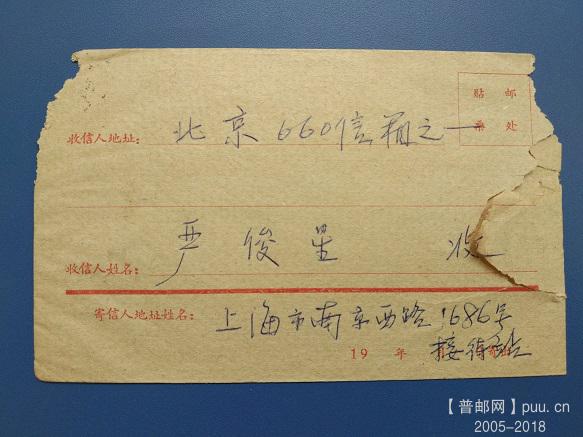 贴 邮
票 处
收信人地址: 北京 660信箱之一
收信人姓名: 严俊星 收
寄信人地址姓名: 上海市南京西路1686号
19 年 接待站
【普邮网】puu.cn
2005-2018